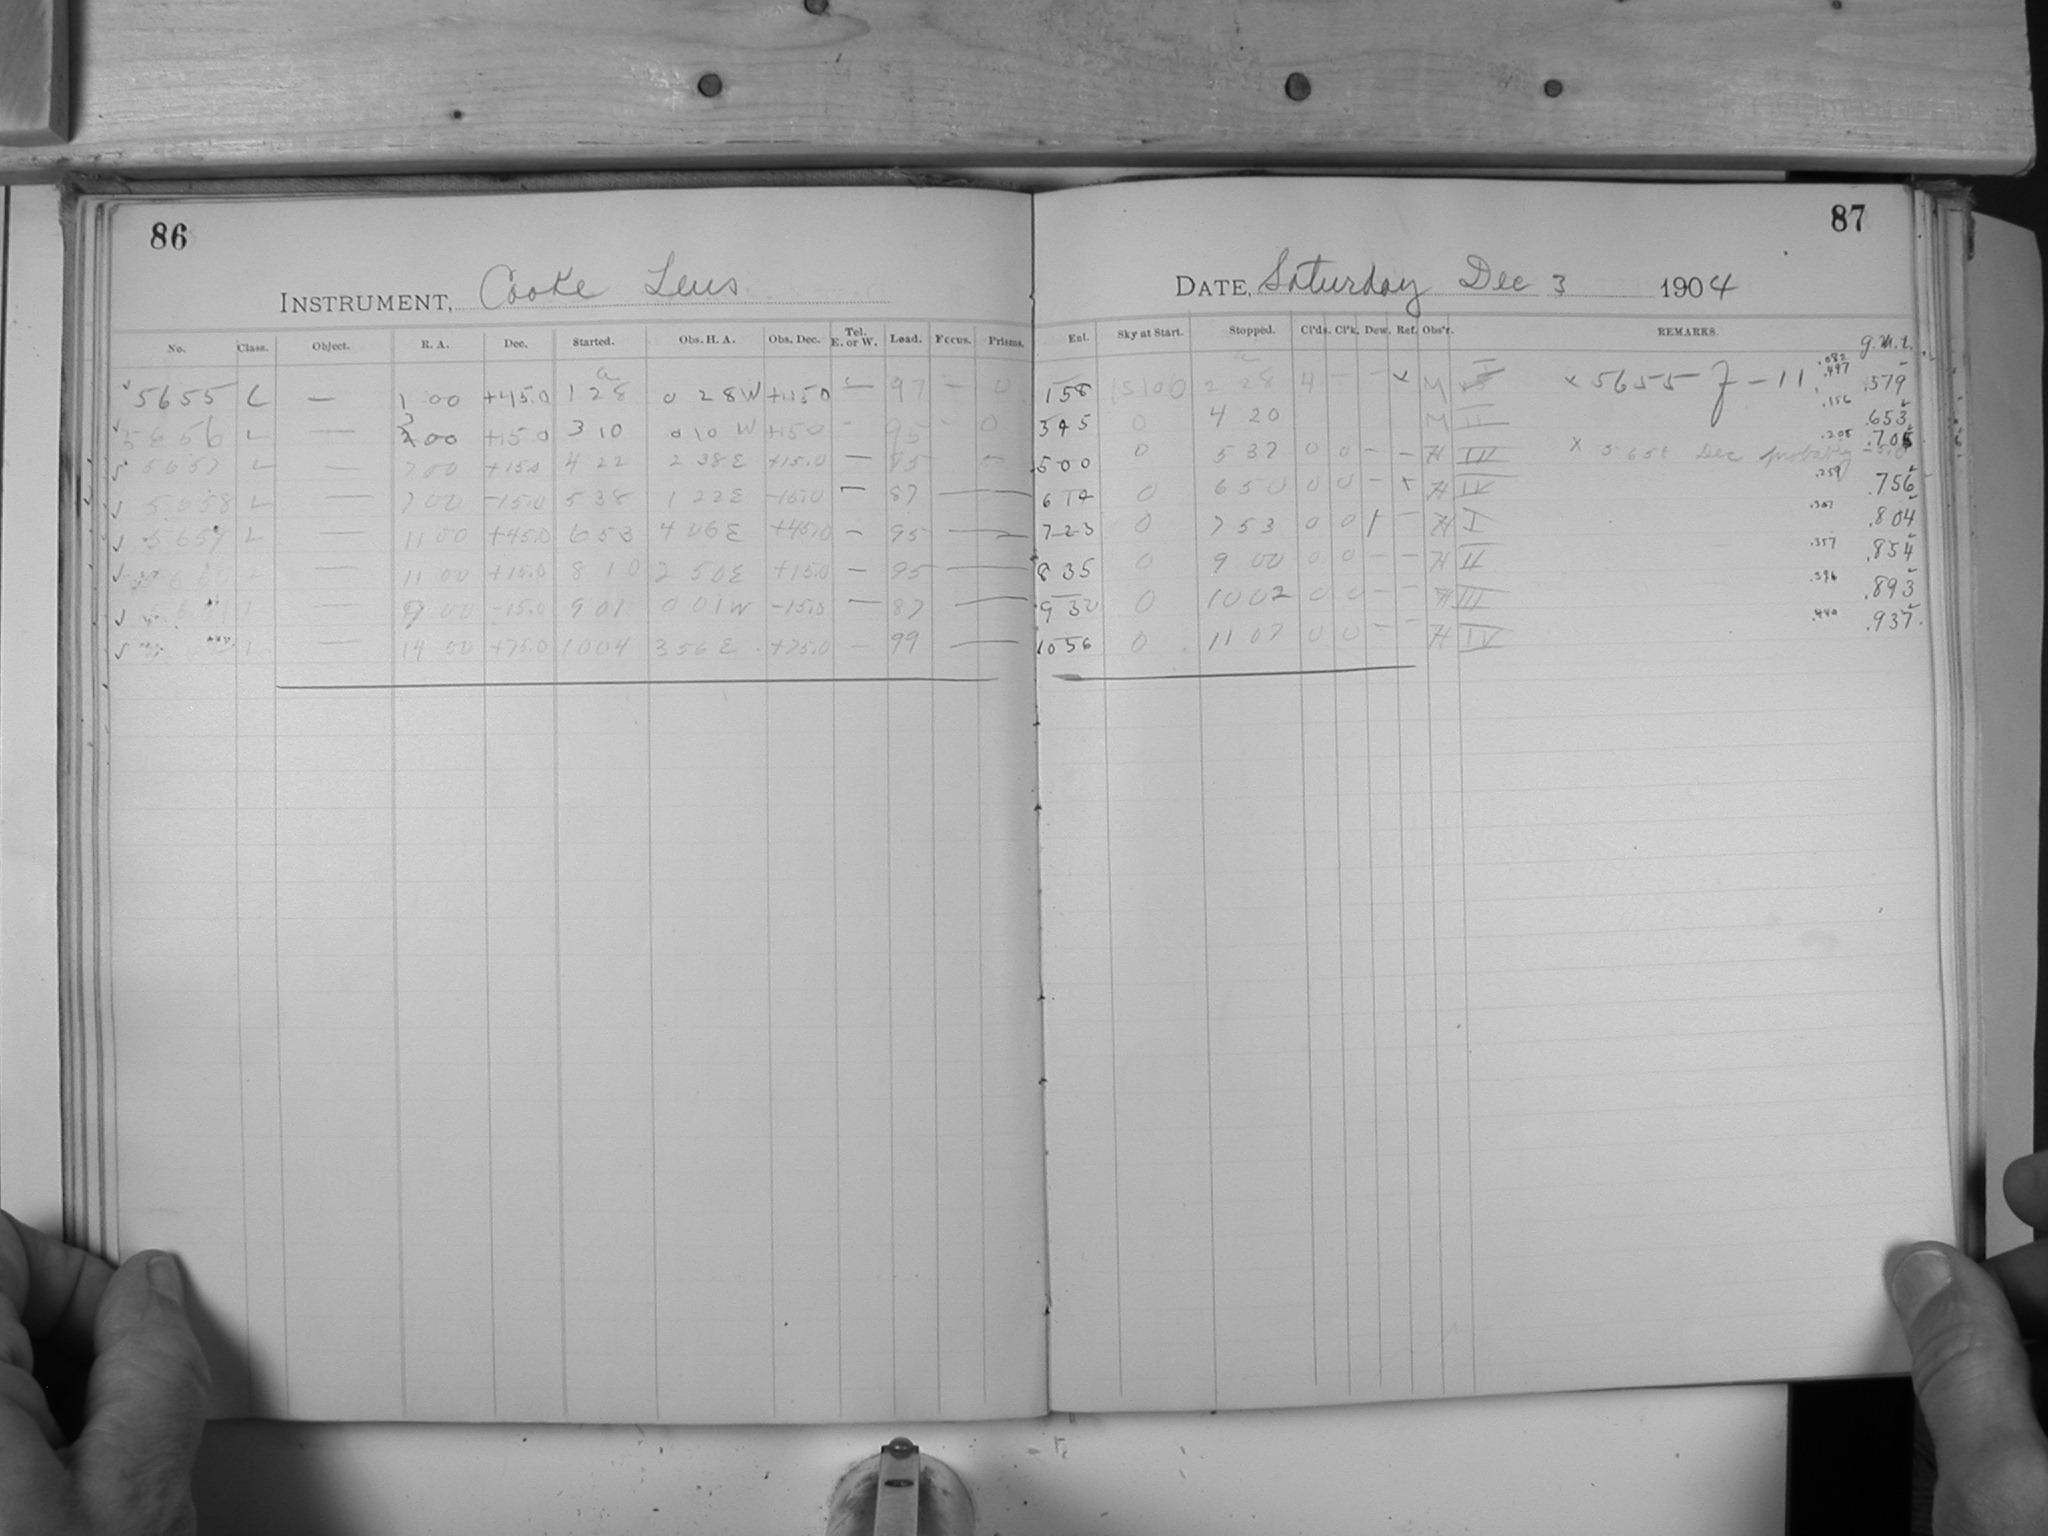 86
87
INSTRUMENT, Cooke Lens
DATE, Saturday Dec 3 1904
No. Class. Object. R. A. Dec. Started. Obs. H. A. Obs. Dec. Tel. E. or W. Load. Focus. Prisms. Ent. Sky at Start. Stopped. Cl'ds. Cl'k. Dew. Ref. Obs'r. REMARKS. G.M.T.
5655 L — 1 00 +45.0 1 28 0 28W — 97 — 0 158 2 28 4 — — x M I x 5655 J - 11 .082 .497 .579
5656 L — 3 00 +15.0 3 10 0 10 W +15.0 — 95 — 0 345 0 4 20 M II .156 .653
5657 L — 7 00 +15.0 4 22 2 38E +15.0 — — 500 0 5 37 0 0 — — H III x Dec probably .208 .705
5658 L — 7 00 -15.0 5 38 1 22E -15.0 — 87 — 614 0 6 50 0 0 — H IV .259 .756
5659 L — 11 00 +45.0 6 53 4 06E +45.0 — 95 — 723 0 7 53 0 0 1 — H I .307 .804
L — 11 00 +15.0 8 10 2 50E +15.0 — 95 — 835 0 9 00 0 0 — — H II .357 .854
L — 9 00 -15.0 9 01 0 01W -15.0 — 87 — 932 0 10 02 0 0 — — H III .396 .893
L — 14 00 +75.0 10 04 3 56 E +75.0 — 99 — 10 56 0 11 07 0 0 — — H IV .440 .937